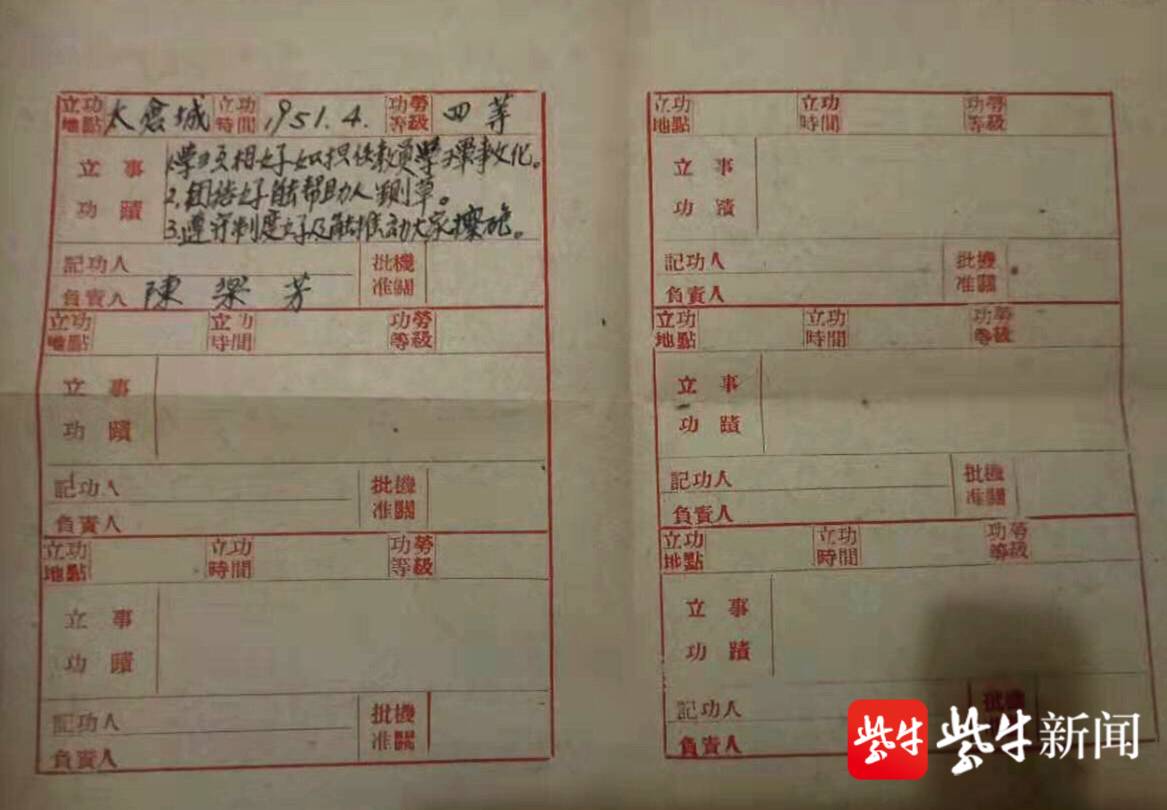 立功地點 太倉城 立功時間 1951.4. 功勞等級 四等
立功事蹟
1.學習互相好如担任教員學习軍事文化。
2.团结好能帮助人鍘草。
3.遵守制度好及能推动大家擦砲。
記功人
負責人 陳 梁 芳
批准機關
立功地點 立功時間 功勞等級
立功事蹟
記功人
負責人
批准機關
立功地點 立功時間 功勞等級
立功事蹟
記功人
負責人
批准機關
立功地點 立功時間 功勞等級
立功事蹟
記功人
負責人
批准機關
立功地點 立功時間 功勞等級
立功事蹟
記功人
負責人
批准機關
立功地點 立功時間 功勞等級
立功事蹟
記功人
負責人
批機
紫牛 紫牛新闻